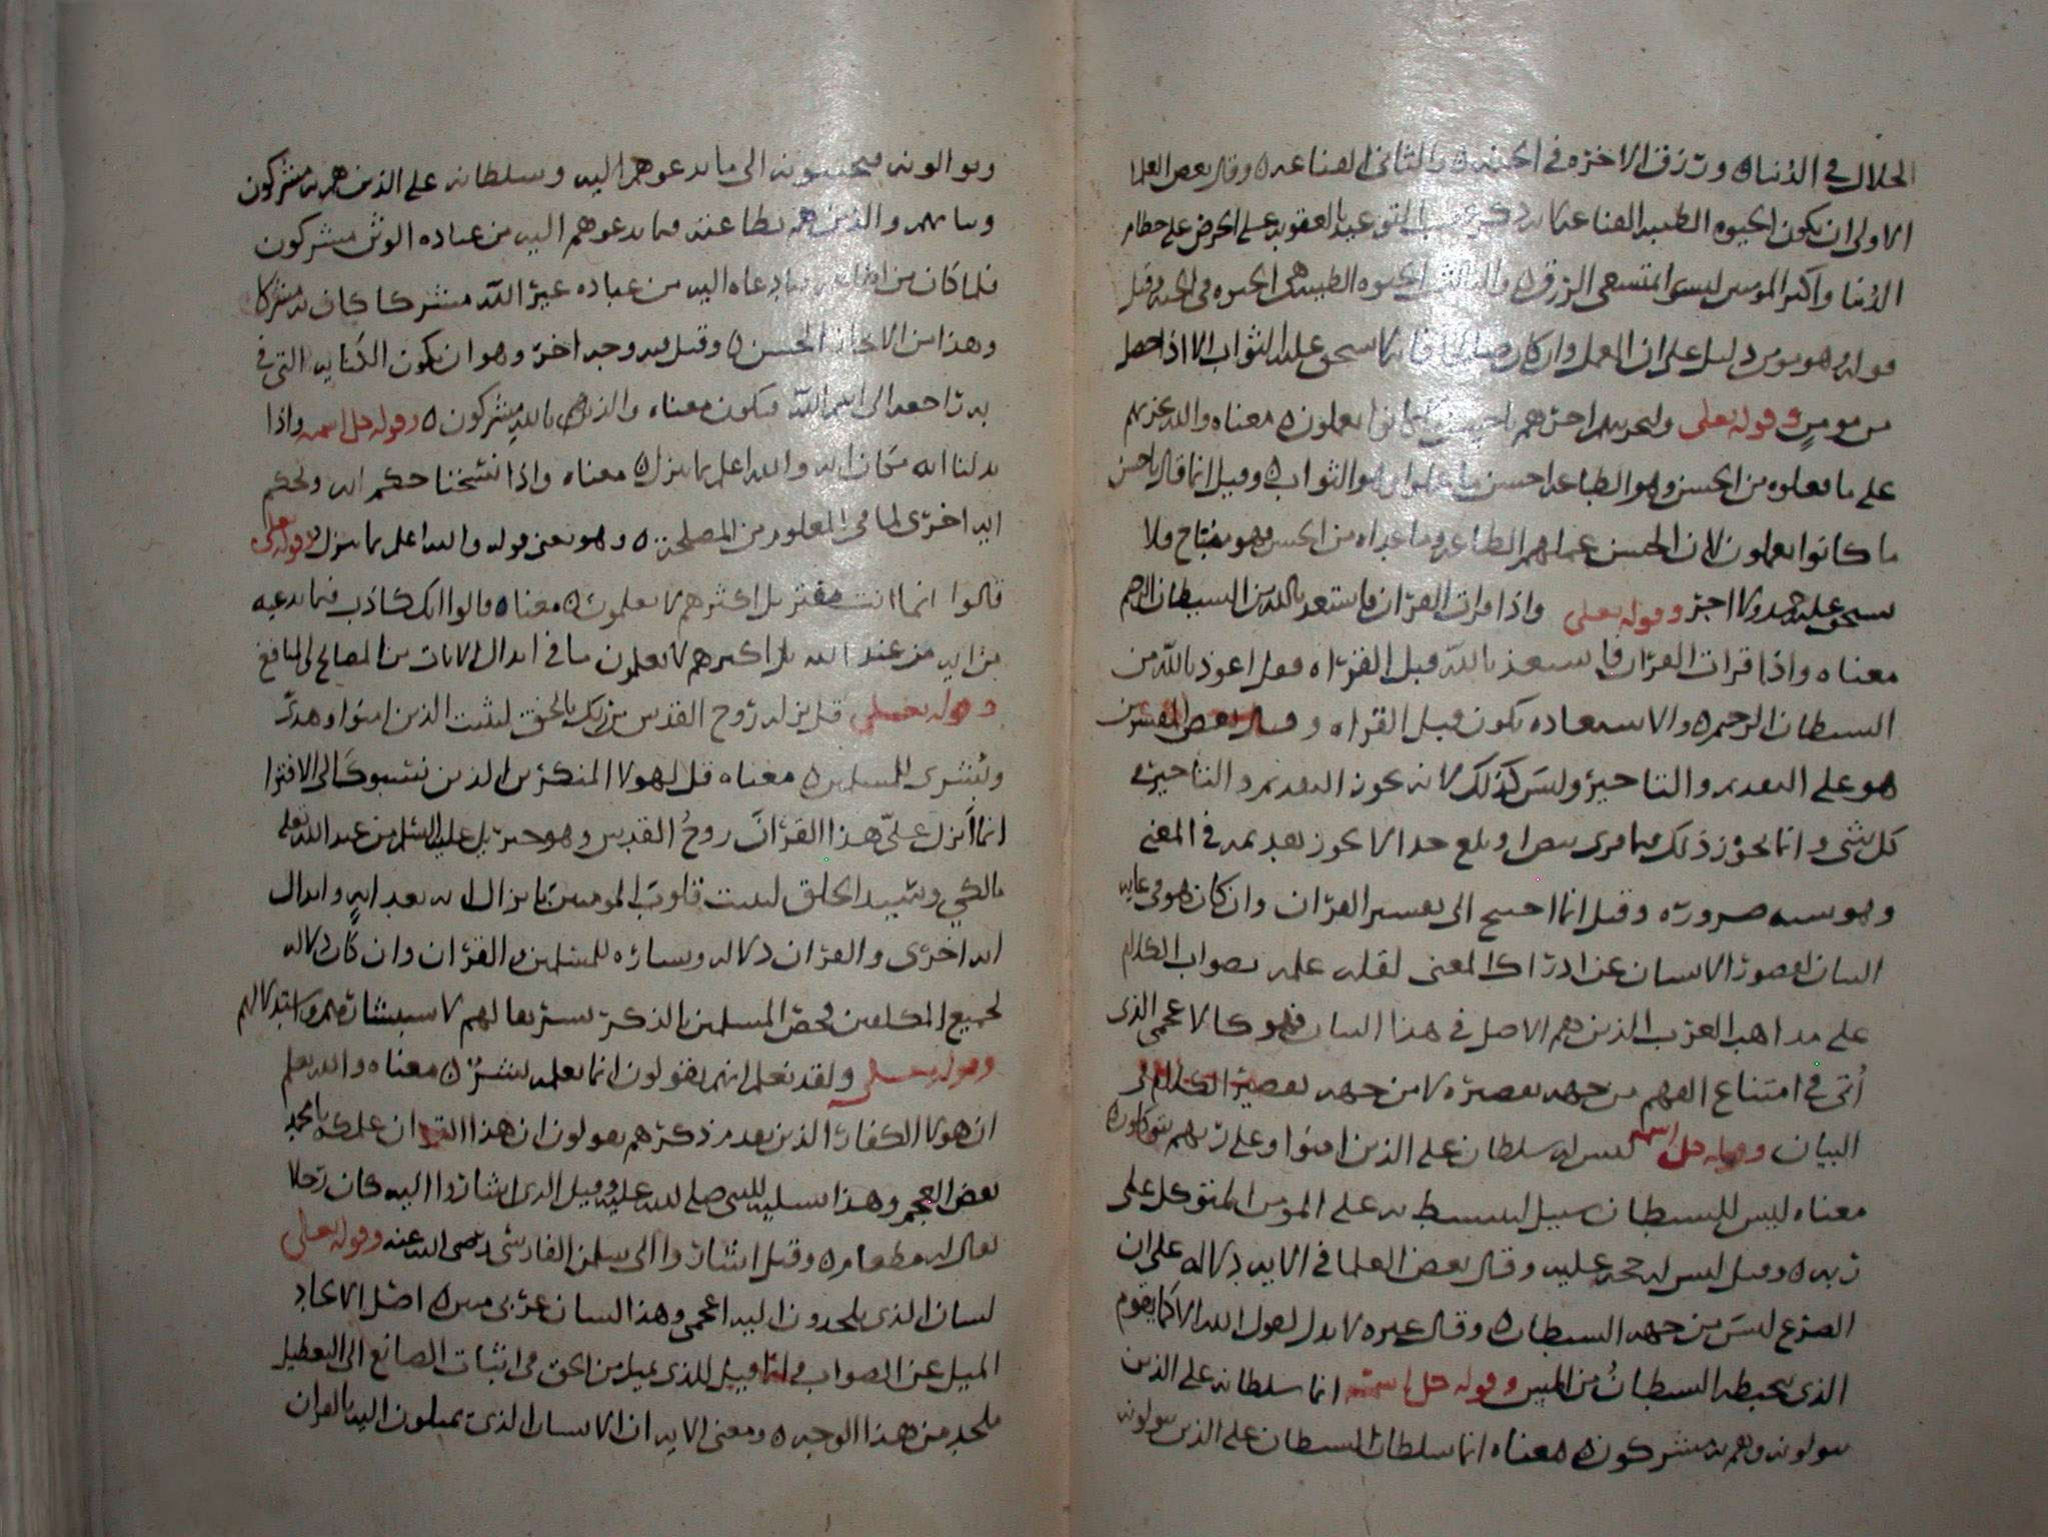 الحلال في الدنيا ورزق الاخره في الجنه والثاني القناعه وقال بعض العلما
الاولى ان يكون الحيوه الطيبه القناعه لانه ذكر عقيب التوعد بالعقوبه على الحرص على حطام
الدنيا واكثر المومنين ليسوا بمتسعي الرزق والثالث الحيوه الطيبه هي الحيوه في الجنه وقيل
قوله وهو مومن دليل على ان العمل وان كان صالحا فانه لا يستحق عليه الثواب الا اذا حصل
من مومن وقوله تعلى ولنجزينهم اجرهم باحسن ما كانوا يعملون معناه والله نجزينهم
على ما يعملوه من الحسن وهو الطاعه احسن ما عملوا وهو الثواب وقيل انما قال باحسن
ما كانوا يعملون لان الحسن عملهم الطاعه وما عداه من الحسن وهو مباح ولا
يستحق عليه حمد ولا اجر وقوله تعلى واذا قرات القران فاستعذ بالله من الشيطان الرجيم
معناه واذا قرات القران فاستعذ بالله قبل القراه فقل اعوذ بالله من
الشيطان الرجيم والاستعاده يكون قبل القراه وقال بعض المفسرين
هو على التقديم والتاخير وليس كذلك لانه لا يجوز التقديم والتاخير في
كل شي وانما يجوز ذلك فيما فيه وبلغ حدا لا يجوز تقديمه في المعنى
وهو سبه ضروره وقيل انما احتيج الى تفسير القران وان كان هو في غايه
البيان لقصور الانسان عن ادراك المعنى لقله علمه بصواب الكلام
على مداهب العرب الذين هم الاصل في هذا اللسان فهو كالاعجمي الذي
اتى في امتناع الفهم من جهه تقصيره لا من جهه تقصير الكلام في
البيان وقوله جل اسمه ليس له سلطان على الذين امنوا وعلى ربهم يتوكلون
معناه ليس للشيطان سبيل على المومن المتوكل على
ربه وقيل ليس له حجه عليه وقال بعض العلما في الايه دلاله على ان
الصرع ليس من جهه الشيطان وقال غيره لا يدل لقول الله الا كما يقوم
الذي يتخبطه الشيطان من المس وقوله جل اسمه انما سلطانه على الذين
يتولونه وهم به مشركون معناه انما سلطان الشيطان على الذين يتولونه
ويوالونه فيجيبونه الى ما يدعوهم اليه وسلطانه على الذين هم به مشركون
والذين هم بطاعته فيما يدعوهم اليه من عباده الوثن مشركون
فلما كان من اطاعه فيما دعاه اليه من عباده غير الله مشركا كان به مشركا
وهذا من الايجاز الحسن وقيل فيه وجه اخر وهو ان يكون الكنايه التي في
به راجعه الى اسم الله فيكون معناه والذين هم بالله مشركون وقوله جل اسمه واذا
بدلنا ايه مكان ايه والله اعلم بما ينزل معناه واذا نسخنا حكم ايه وبحكم
ايه اخرى لما في المعلوم من المصلحة وهو معنى قوله والله اعلم بما ينزل وقوله تعلى
قالوا انما انت مفتر بل اكثرهم لا يعلمون معناه قالوا انك كاذب فيما تدعيه
من انه من عند الله بل اكثرهم لا يعلمون ما في ابدال الايات من المصالح والمنافع
وقوله تعلى قل نزله روح القدس من ربك بالحق ليثبت الذين امنوا وهدى
وبشرى للمسلمين معناه قل لهولا المنكرين الذين نسبوك الى الافترا
انما انزل علي هذا القران روح القدس وهو جبريل عليه السلم من عند الله تعلى
بالحق وتنبيه الخلق ليثبت قلوب المومنين بانزال ايه بعد ايه وابدال
ايه اخرى والقران دلاله وبشاره للمسلمين والقران وان كان دلاله
لجميع المكلفين فخص المسلمين بالذكر تشريفا لهم لاستبشارهم واستدلالهم
وقوله تعلى ولقد نعلم انهم يقولون انما يعلمه بشر معناه والله نعلم
ان هولا الكفار الذين تقدم ذكرهم يقولون ان هذا القران علمكه يا محمد
بعض العجم وهذا تسليه للنبي صلى الله عليه وقيل الذي اشاروا اليه كان رجلا
يقال له مطعام وقيل اشاروا الى سلمن الفارسي رضى الله عنه وقوله تعلى
لسان الذي يلحدون اليه اعجمي وهذا لسان عربي مبين اصل الالحاد
الميل عن الصواب ولهذا قيل للذي يميل من الحق في اثبات الصانع الى التعطيل
ملحد من هذا الوجه ومعنى الايه ان الانسان الذي تميلون اليه بالقران